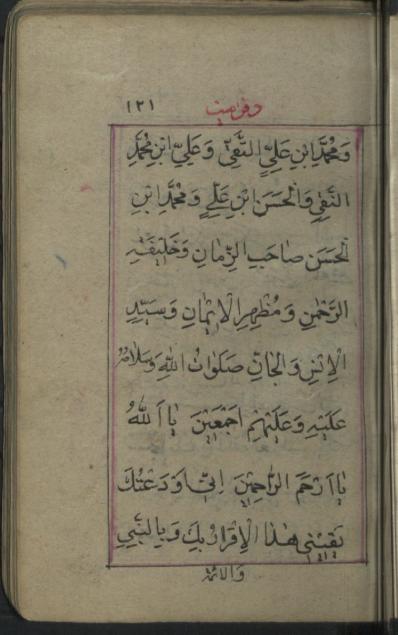 ۱۲۱
وَمُحَمَّدَ ابْنِ عَلِيٍّ التَّقِيِّ وَعَلِيِّ ابْنِ مُحَمَّدٍ
النَّقِيِّ وَالْحَسَنِ ابْنِ عَلِيٍّ وَمُحَمَّدَ ابْنِ
الْحَسَنِ صَاحِبِ الزَّمَانِ وَخَلِيفَةِ
الرَّحْمٰنِ وَمُظْهِرِ الْإِيمَانِ وَسَيِّدِ
الْإِنْسِ وَالْجَانِّ صَلَوَاتُ اللهِ وَسَلَامُهُ
عَلَيْهِ وَعَلَيْهِمْ اَجْمَعِينَ يَا اَللهُ
يَا اَرْحَمَ الرَّاحِمِينَ اِنِّي اَوْدَعْتُكَ
يَقِينِي هٰذَا الْإِقْرَارَ بِكَ وَبِالنَّبِيِّ
وَالْائمة